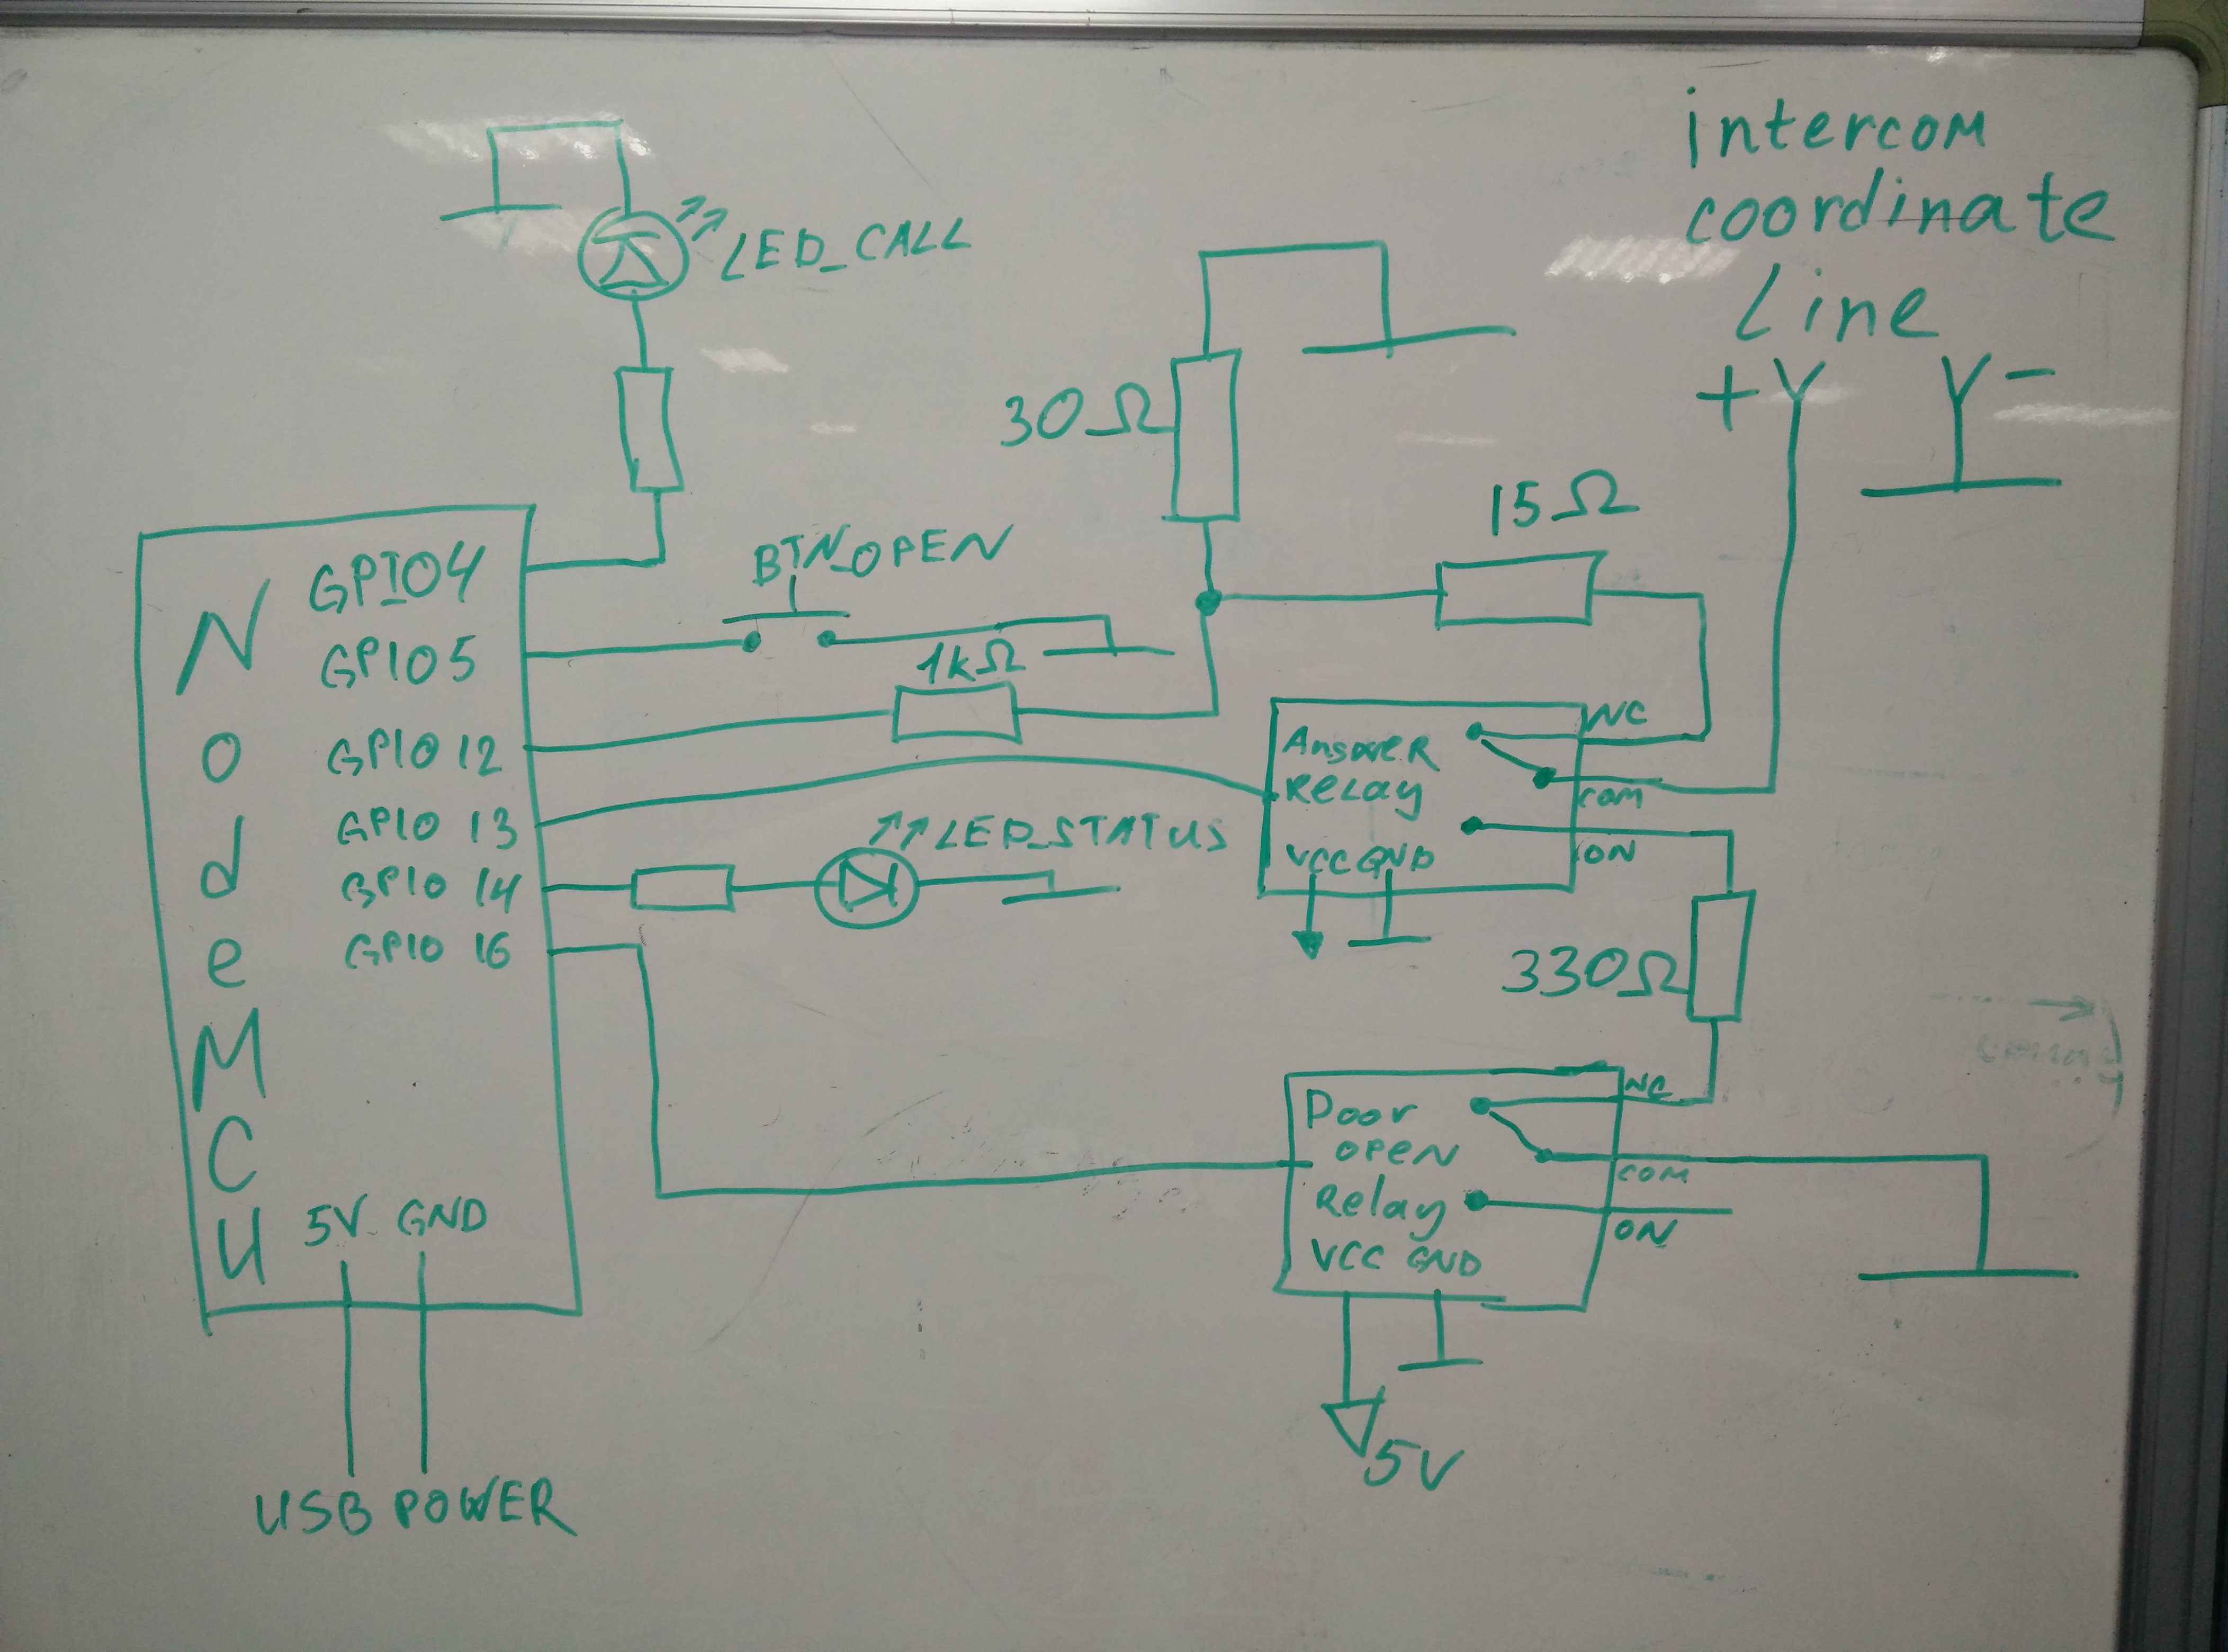 intercom
coordinate
Line
+ -
LED_CALL
30Ω
15Ω
BTN_OPEN
1kΩ
NodeMCU
GPIO4
GPIO5
GPIO 12
GPIO 13
GPIO 14
GPIO 16
5V GND
USB POWER
LED_STATUS
Answer
Relay
VCC GND
NC
COM
ON
330Ω
Door
open
Relay
VCC GND
NC
COM
ON
5V